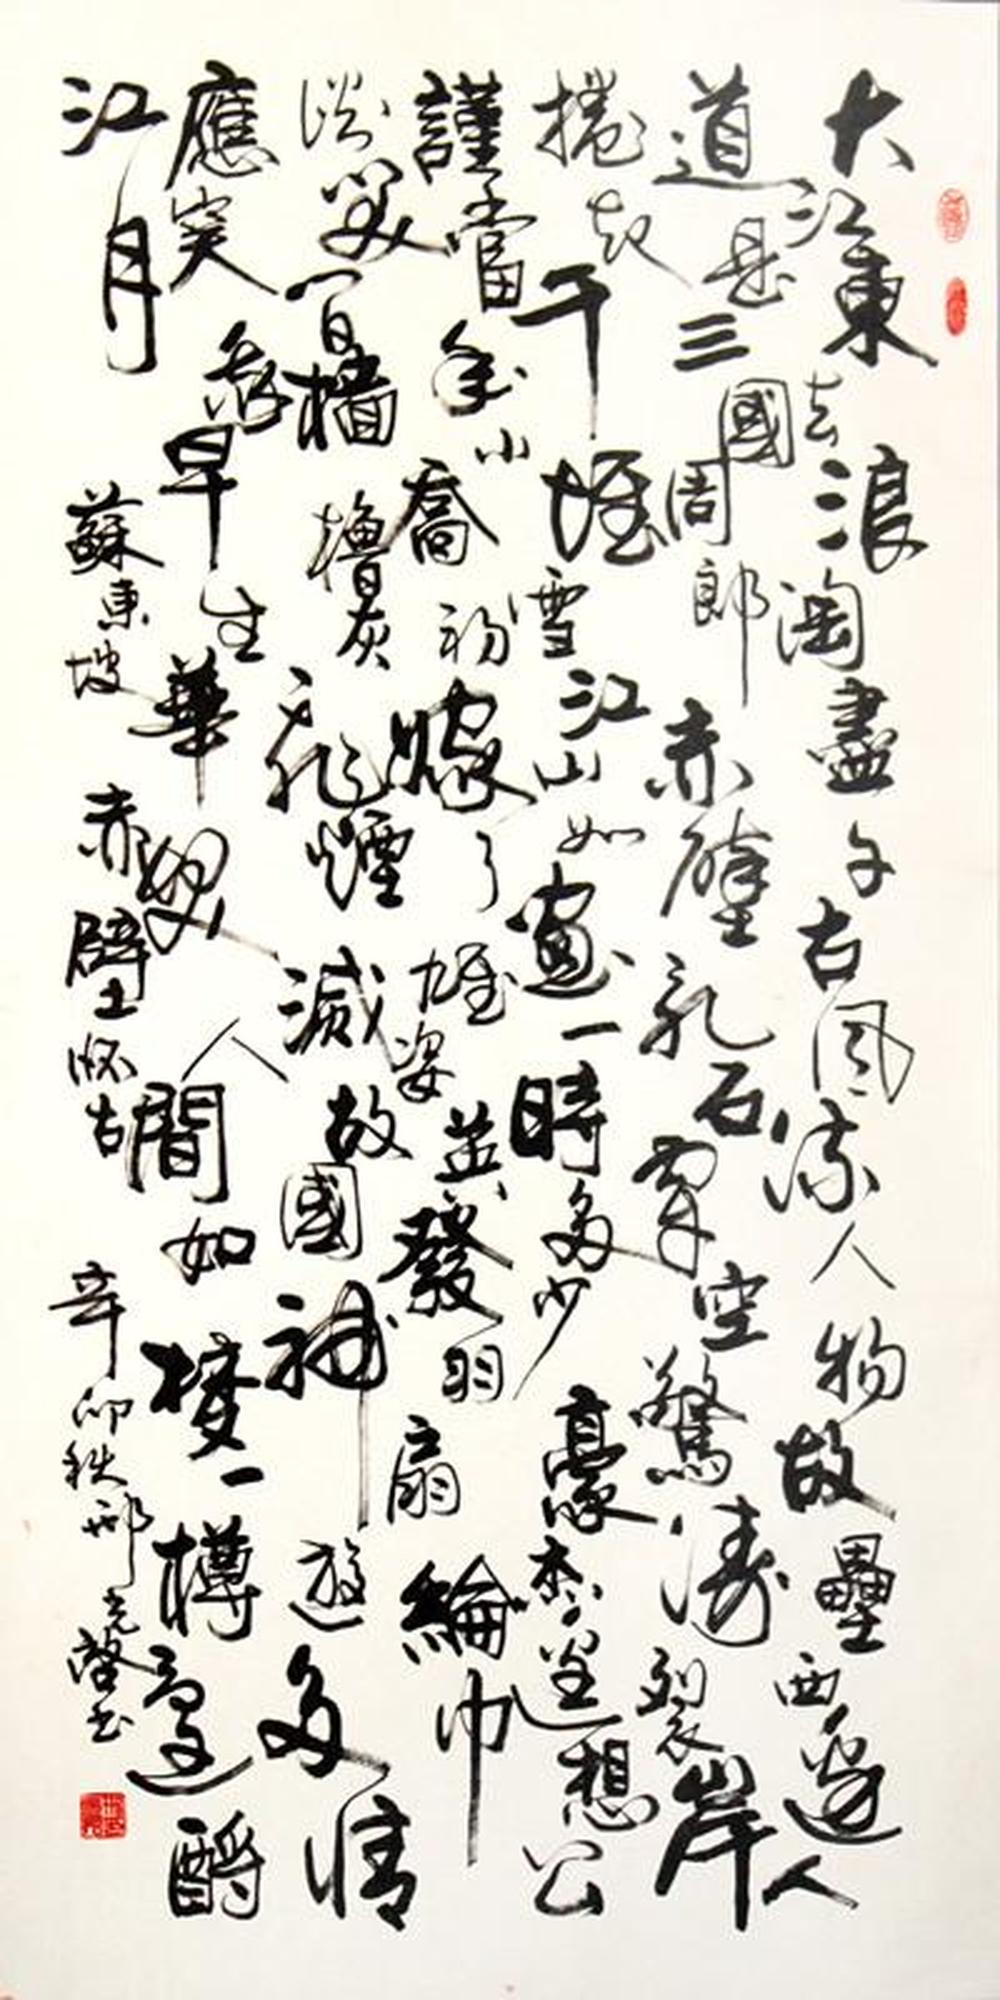 大江東去浪淘盡千古風流人物故壘西邊人
道是三國周郎赤壁乱石穿空驚濤裂岸
捲起千堆雪江山如畫一時多少豪杰遥想公
謹當年小喬初嫁了雄姿英發羽扇綸巾
談笑间檣櫓灰飛煙滅故國神遊多情
應笑我早生華髮人間如夢一樽還酹
江月 蘇東坡 赤壁懷古 辛卯秋 邢 书